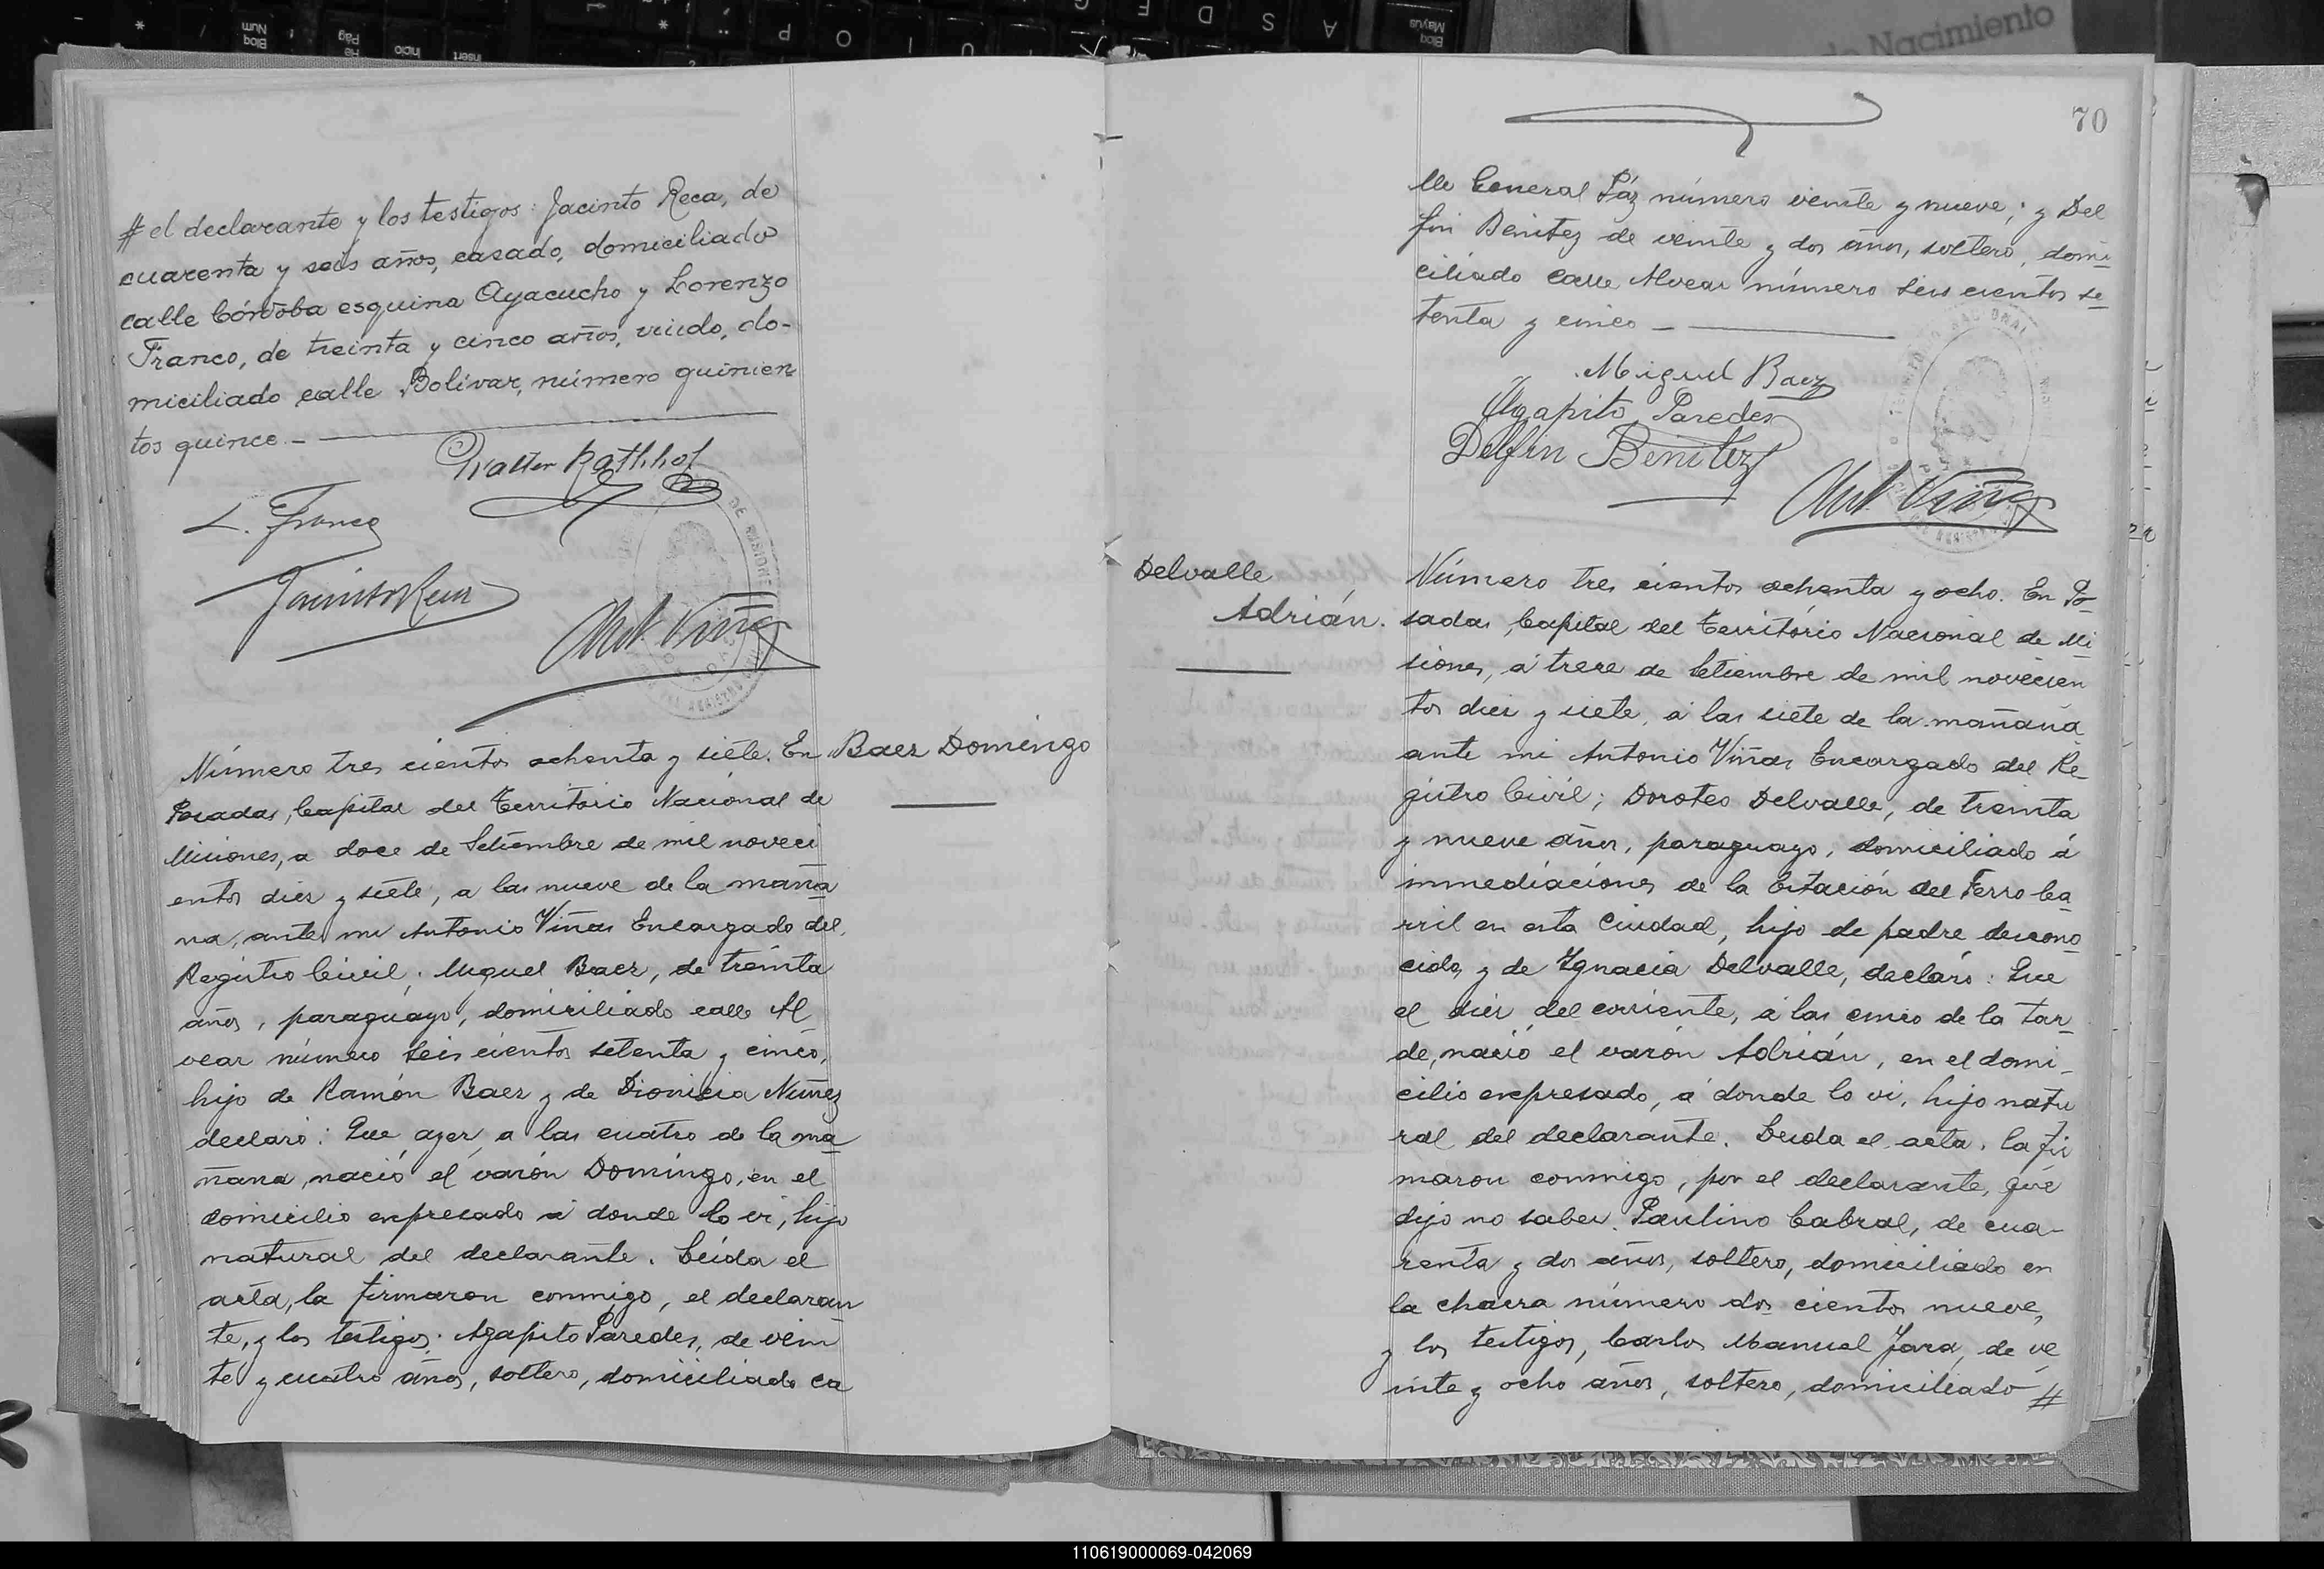 # el declarante y los testigos: Jacinto Reca, de
cuarenta y seis años, casado, domiciliado
calle Córdoba esquina Ayacucho y Lorenzo
Franco, de treinta y cinco años, viudo, do-
miciliado calle Bolívar, número quinien
tos quince.-
Walter Rathhof
L. Franco
Jacinto Reca
Ant. Viñas
Número tres cientos ochenta y siete. En
Baez Domingo
Posadas, Capital del Territorio Nacional de
Misiones, a doce de Setiembre de mil noveci
entos diez y siete, a las nueve de la maña
na, ante mi Antonio Viñas Encargado del
Registro Civil; Miguel Baez, de treinta
años, paraguayo, domiciliado calle Al
vear número seis cientos setenta y cinco,
hijo de Ramón Baez y de Dionisia Nuñez
declaró: Que ayer, a las cuatro de la ma
ñana, nació el varón Domingo, en el
domicilio expresado á donde lo vi, hijo
natural del declarante. Leída el
acta, la firmaron conmigo, el declaran
te, y los testigos: Agapito Paredes, de vein
te y cuatro años, soltero, domiciliado ca
70
lle General Páz número veinte y nueve; y Del
fin Benitez de veinte y dos años, soltero, domi
ciliado calle Alvear número seis cientos se
tenta y cinco -
Miguel Baez
Agapito Paredes
Delfin Benitez
Ant. Viñas
Delvalle
Adrián.
Número tres cientos ochenta y ocho. En Po
sadas, Capital del Territorio Nacional de Mi
siones, á trece de Setiembre de mil novecien
tos diez y siete, á las siete de la mañana
ante mi Antonio Viñas Encargado del Re
gistro Civil; Doroteo Delvalle, de treinta
y nueve años, paraguayo, domiciliado á
inmediaciones de la Estación del Ferro Ca
rril en esta Ciudad, hijo de padre descono
cido, y de Ygnacia Delvalle, declaró: Que
el diez del corriente, á las cinco de la tar
de, nació el varón Adrián, en el domi
cilio expresado, á donde lo vi, hijo natu
ral del declarante. Leida el acta, la fir
maron conmigo, por el declarante, que
dijo no saber, Paulino Cabral, de cua-
renta y dos años, soltero, domiciliado en
la chacra número dos cientos nueve,
y los testigos, Carlos Manuel Jara, de ve
inte y ocho años, soltero, domiciliado #
110619000069-042069